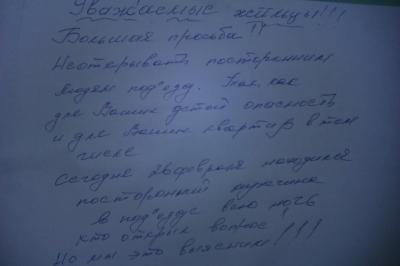 Уважаемые жильцы!!!
Большая просьба!!
Неоткрывать посторонним
людям под'езду. Так как
для Ваших детей опасность
и для Ваших квартир в том
числе
Сегодня 28 февраля находился
посторонний мужчина
в под'езде всю ночь
кто открыл вопрос!
Но мы это выясним!!!